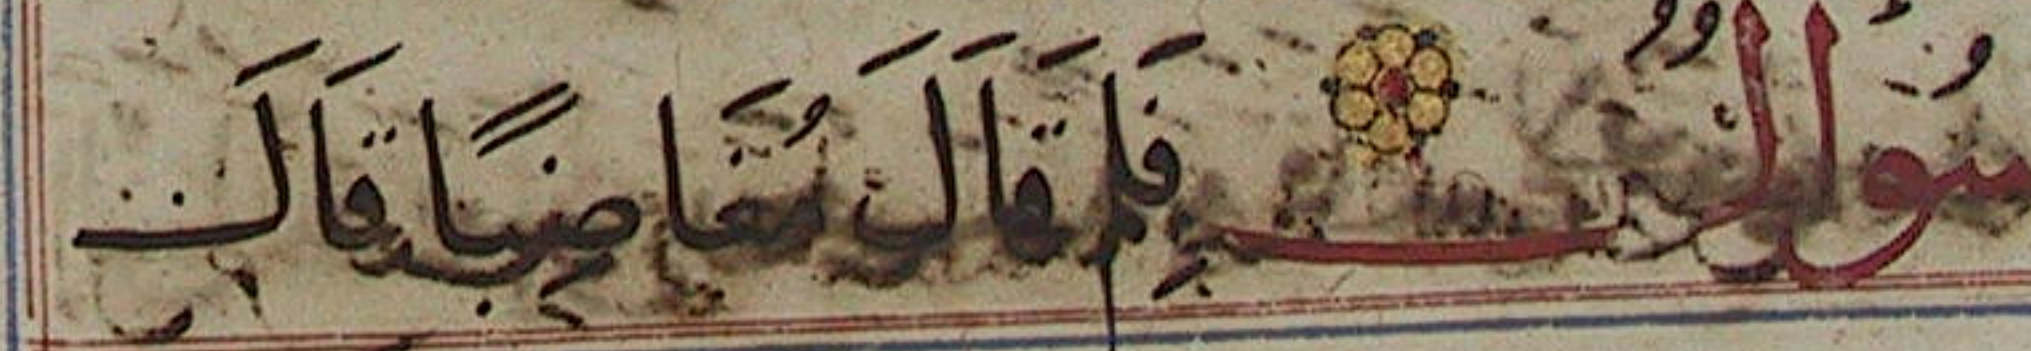 سُؤالٌ فَلِمَ قَالَ مُغَاضِبًا قَالَ